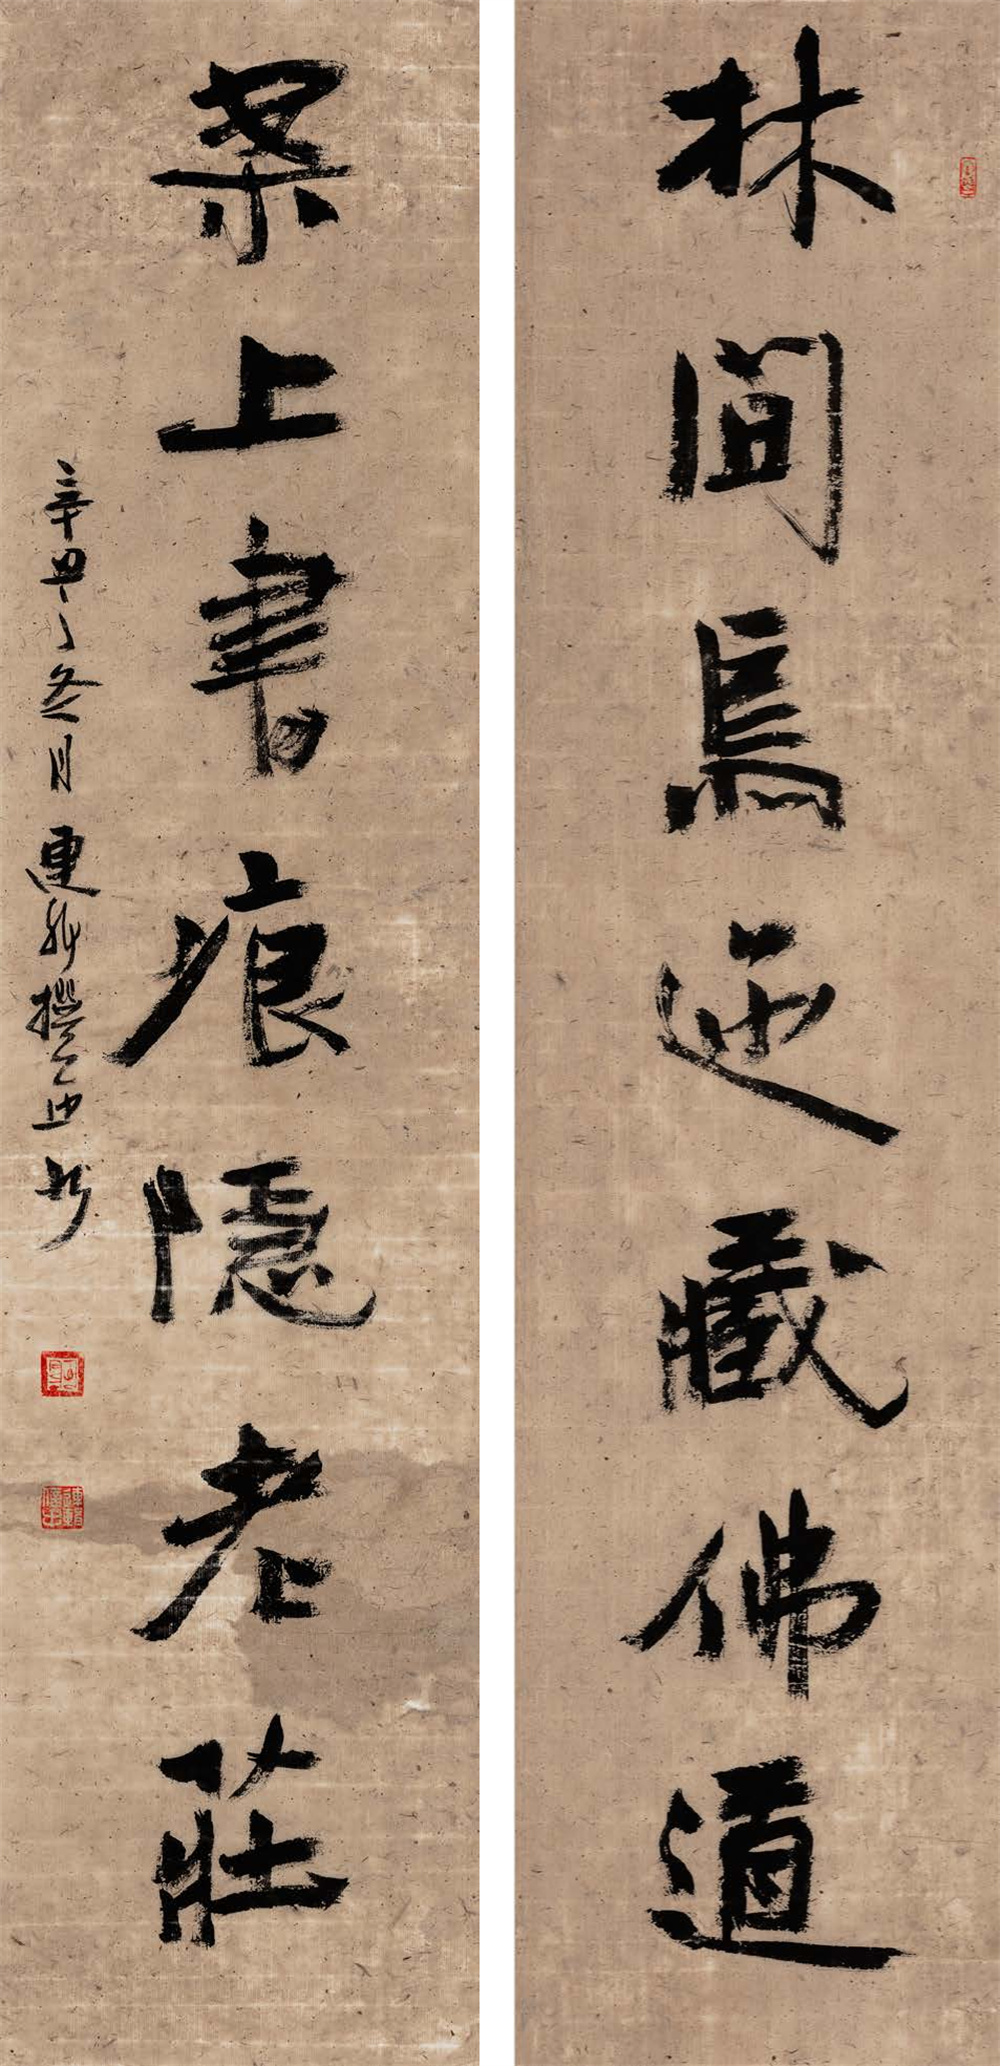 林間鳥迹藏佛道
案上書痕隱老莊
辛丑冬月連新撰并書